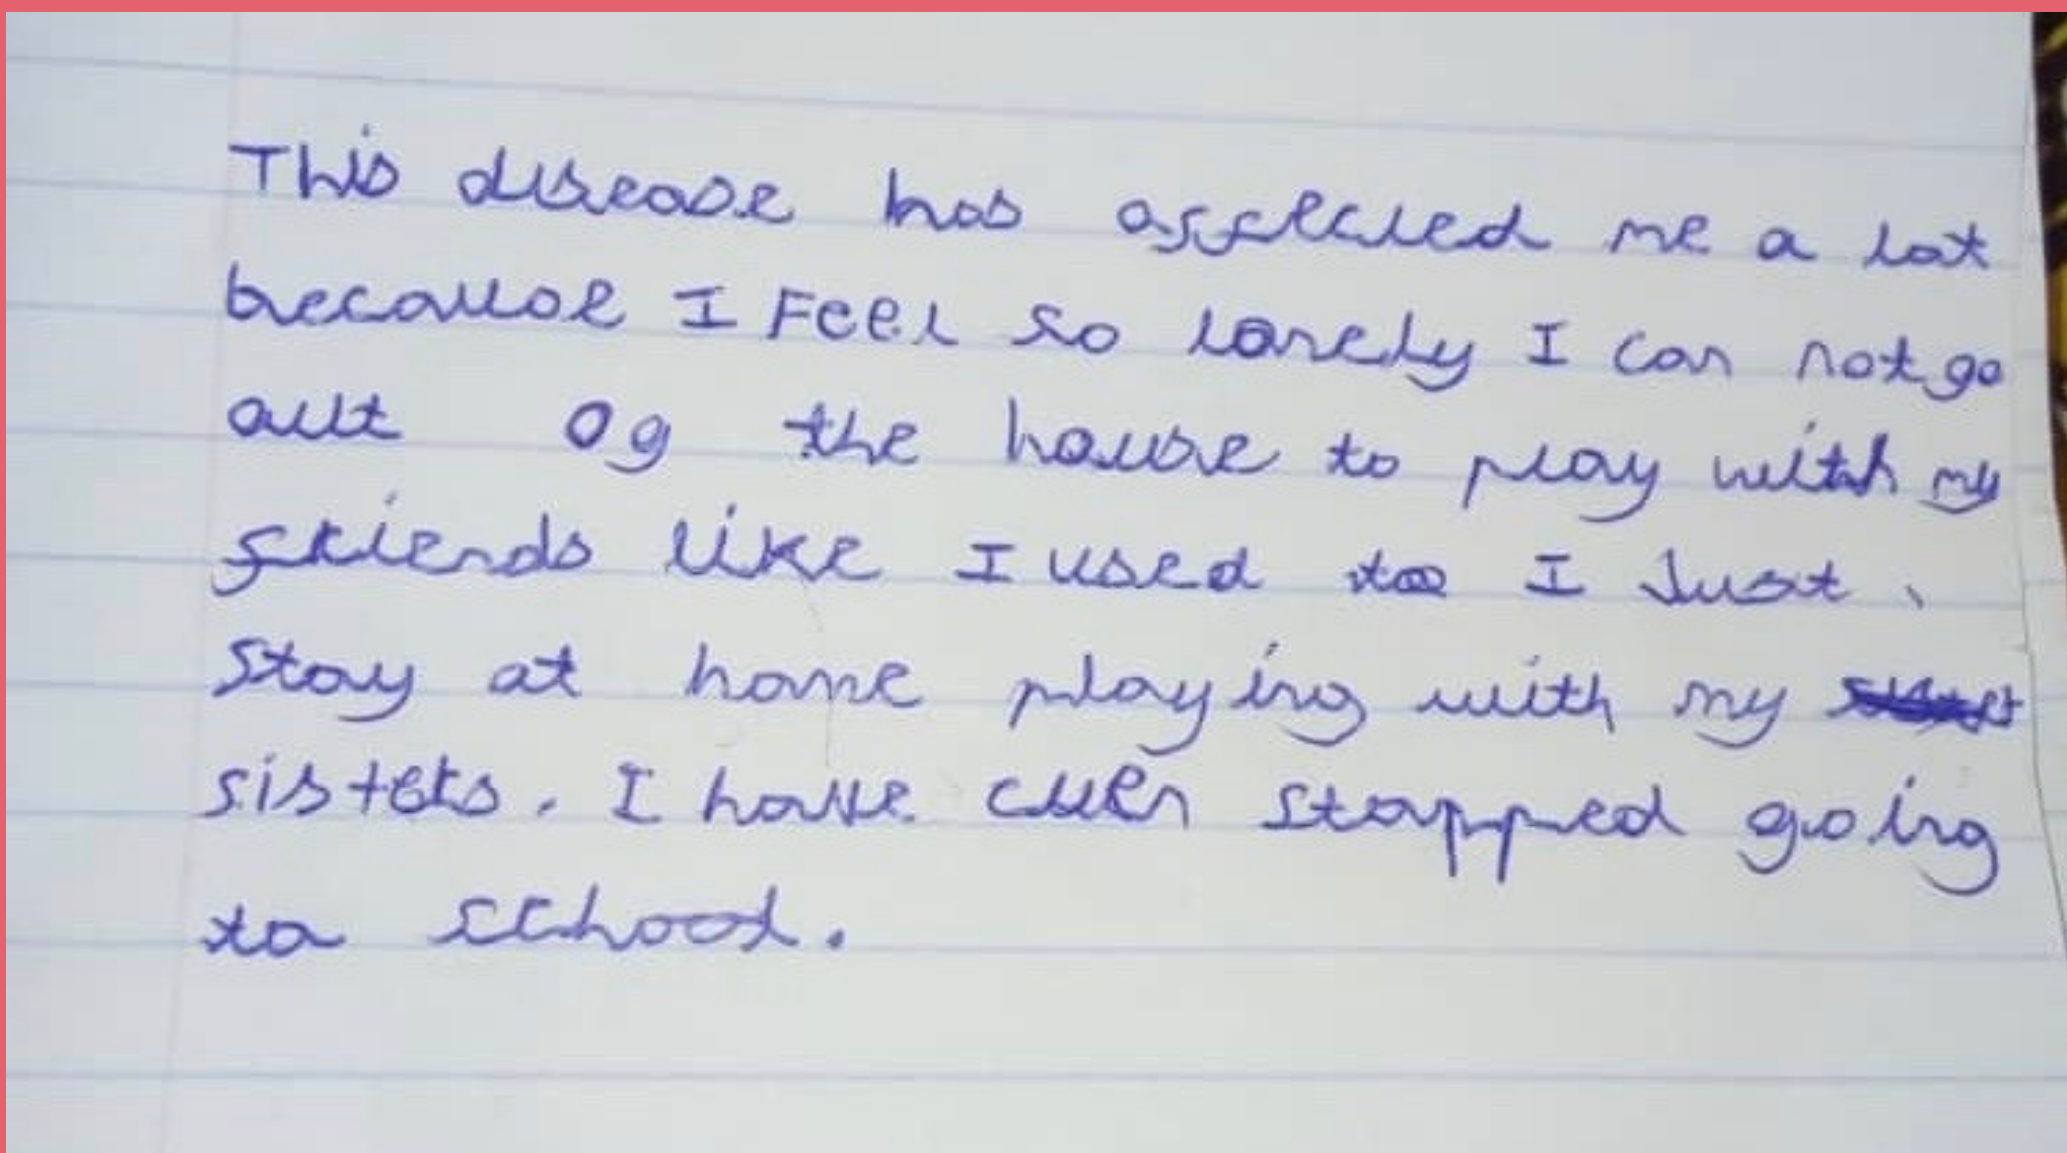 This disease has affected me a lot
because I Feel so lonely I can not go
out of the house to play with my
friends like I used to I Just
Stay at home playing with my
sisters. I have even stopped going
to school.